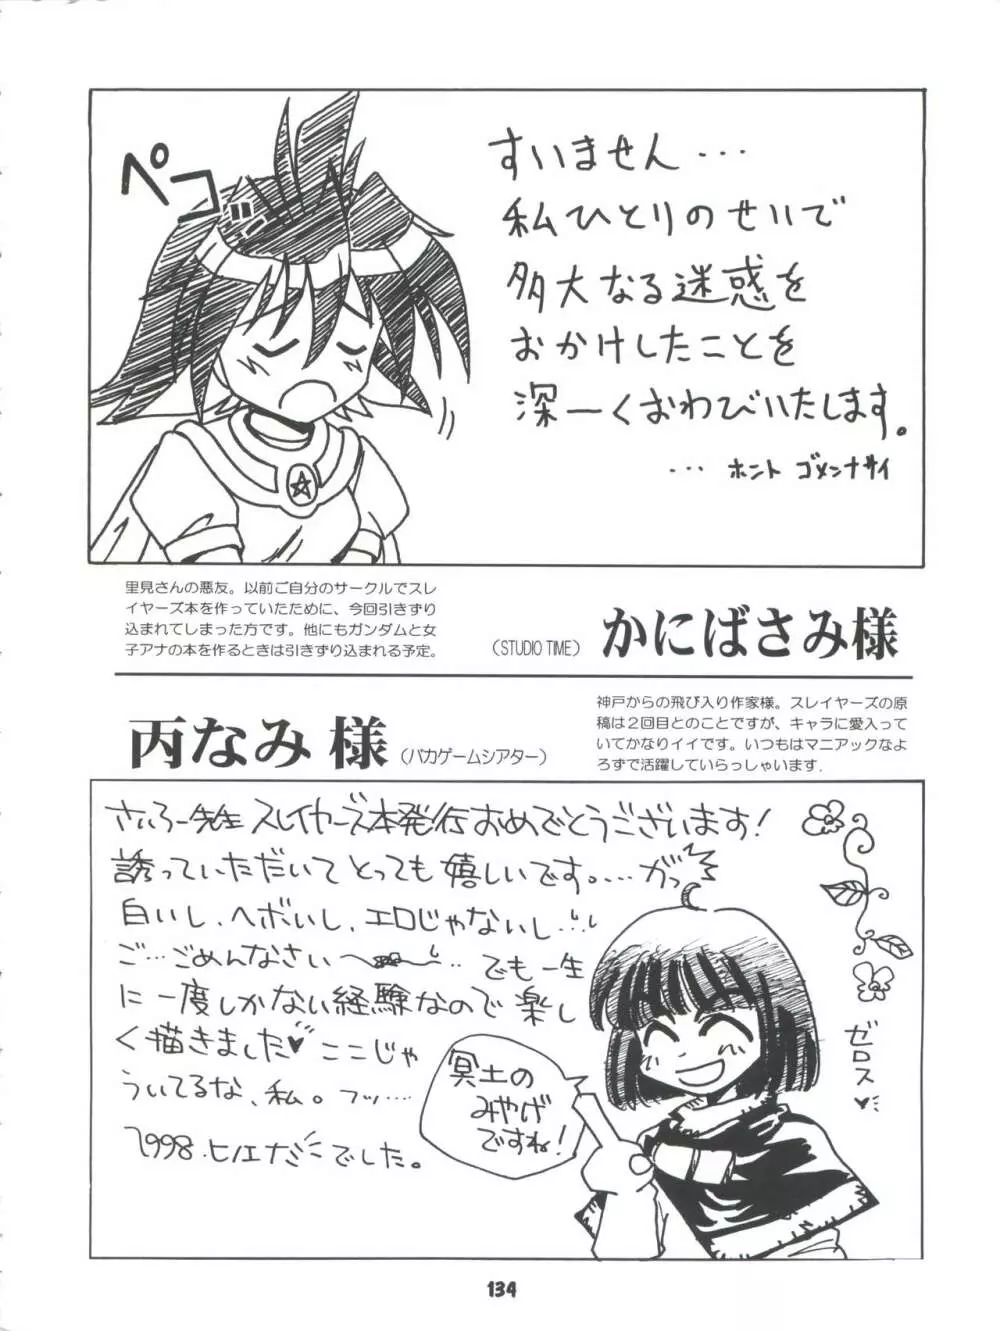 ペコ
すいません・・・
私ひとりのせいで
多大なる迷惑を
おかけしたことを
深ーくおわびいたします。
・・・ホント ゴメンナサイ
里見さんの悪友。以前ご自分のサークルでスレ
イヤーズ本を作っていたために、今回引きずり
込まれてしまった方です。他にもガンダムと女
子アナの本を作るときは引きずり込まれる予定。
(STUDIO TIME) かにばさみ様
丙なみ 様 (バカゲームシアター)
神戸からの飛び入り作家様。スレイヤーズの原
稿は2回目とのことですが、キャラに愛入って
いてかなりイイです。いつもはマニアックなよ
ろずで活躍していらっしゃいます.
さいろー先生 スレイヤーズ本発行おめでとうございます!
誘っていただいてとっても嬉しいです。・・・がっ
白いし、ヘボいし、エロじゃないし・・・
ご・・・ごめんなさい〜 ・・でも一生
に一度しかない経験なので楽し
く描きました♥ ここじゃ
ういてるな、私。フッ・・・・
1998.ヒノエナミでした。
冥土の
みやげ
ですね!
ゼロス
♥
134